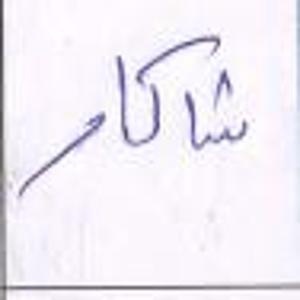 شاکار